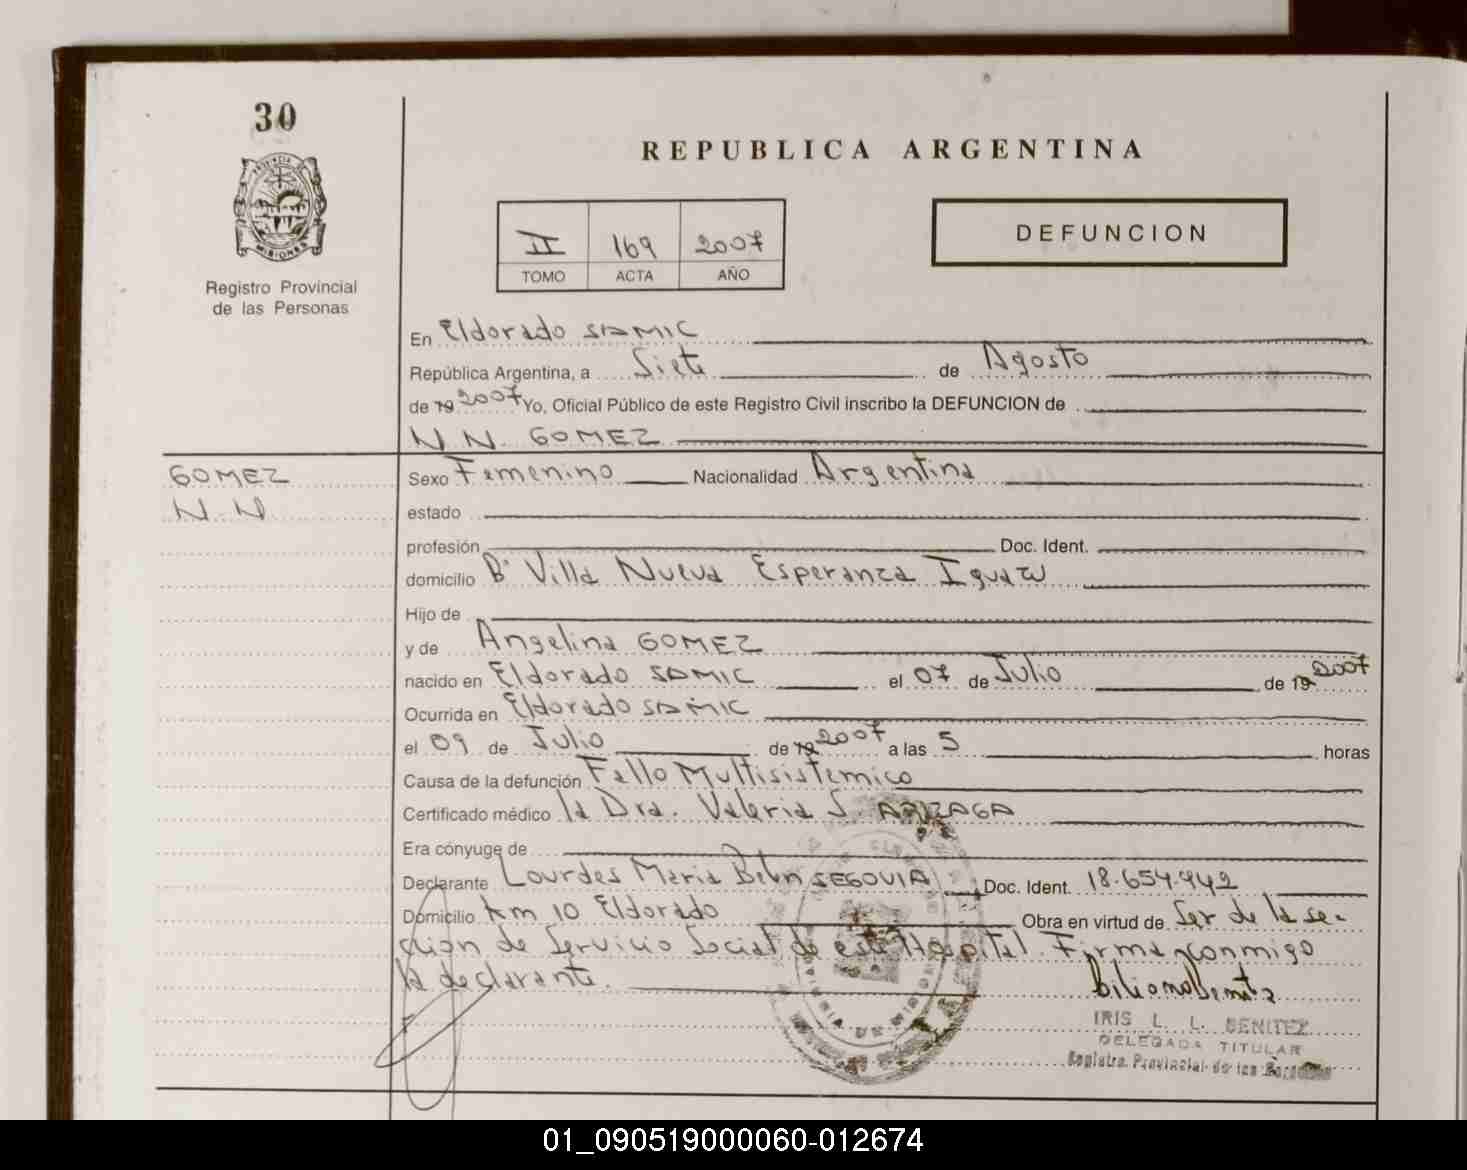 30
PROVINCIA DE
MISIONES
Registro Provincial
de las Personas
REPUBLICA ARGENTINA
II 169 2007
TOMO ACTA AÑO
DEFUNCION
En Eldorado SAMIC
República Argentina, a Siete de Agosto
de 19 2007 Yo, Oficial Público de este Registro Civil inscribo la DEFUNCION de
N N. GOMEZ
GOMEZ
N. N.
Sexo Femenino Nacionalidad Argentina
estado
profesión Doc. Ident.
domicilio Bº Villa Nueva Esperanza Iguazu
Hijo de
y de Angelina GOMEZ
nacido en Eldorado SAMIC el 07 de Julio de 19 2007
Ocurrida en Eldorado SAMIC
el 09 de Julio de 19 2007 a las 5 horas
Causa de la defunción Fallo Multisistemico
Certificado médico la Dra. Valeria S. ARIZAGA
Era cónyuge de
Declarante Lourdes Maria Belen SEGOVIA Doc. Ident. 18.654.942
Domicilio Km 10 Eldorado Obra en virtud de Ser de la se-
ccion de Servicio Social de este Hospital. Firma conmigo
la declarante.
IRIS L. L. BENITEZ
DELEGADA TITULAR
Registro Provincial de las Personas
01_090519000060-012674